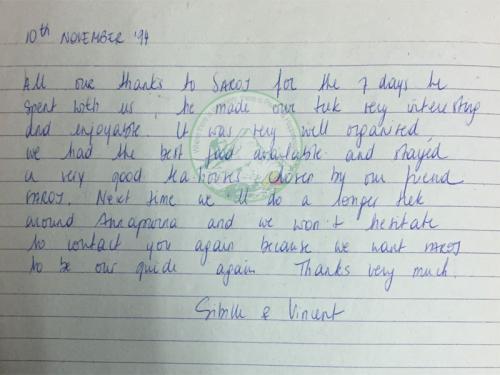 10th NOVEMBER '94
All our thanks to SAROJ for the 7 days he
spent with us, he made our trek very interesting
and enjoyable. It was very well organised,
we had the best food available and stayed
in very good tea houses chosen by our friend
SAROJ. Next time we'll do a longer trek
around Annapurna and we won't hesitate
to contact you again because we want SAROJ
to be our guide again. Thanks very much.
Sibille & Vincent